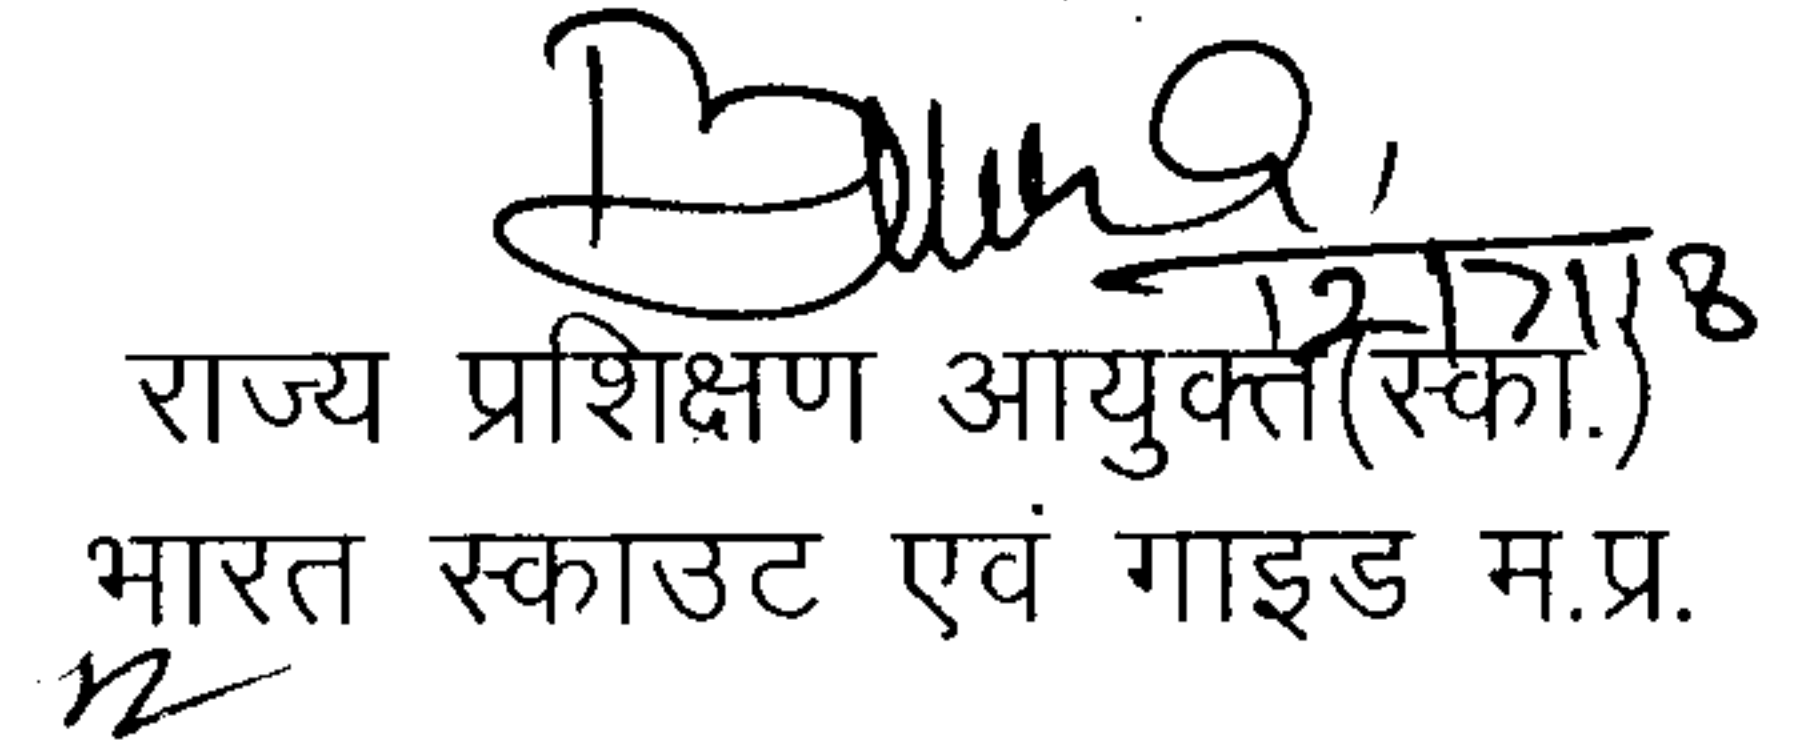 12/7/18
राज्य प्रशिक्षण आयुक्त(स्का.)
भारत स्काउट एवं गाइड म.प्र.